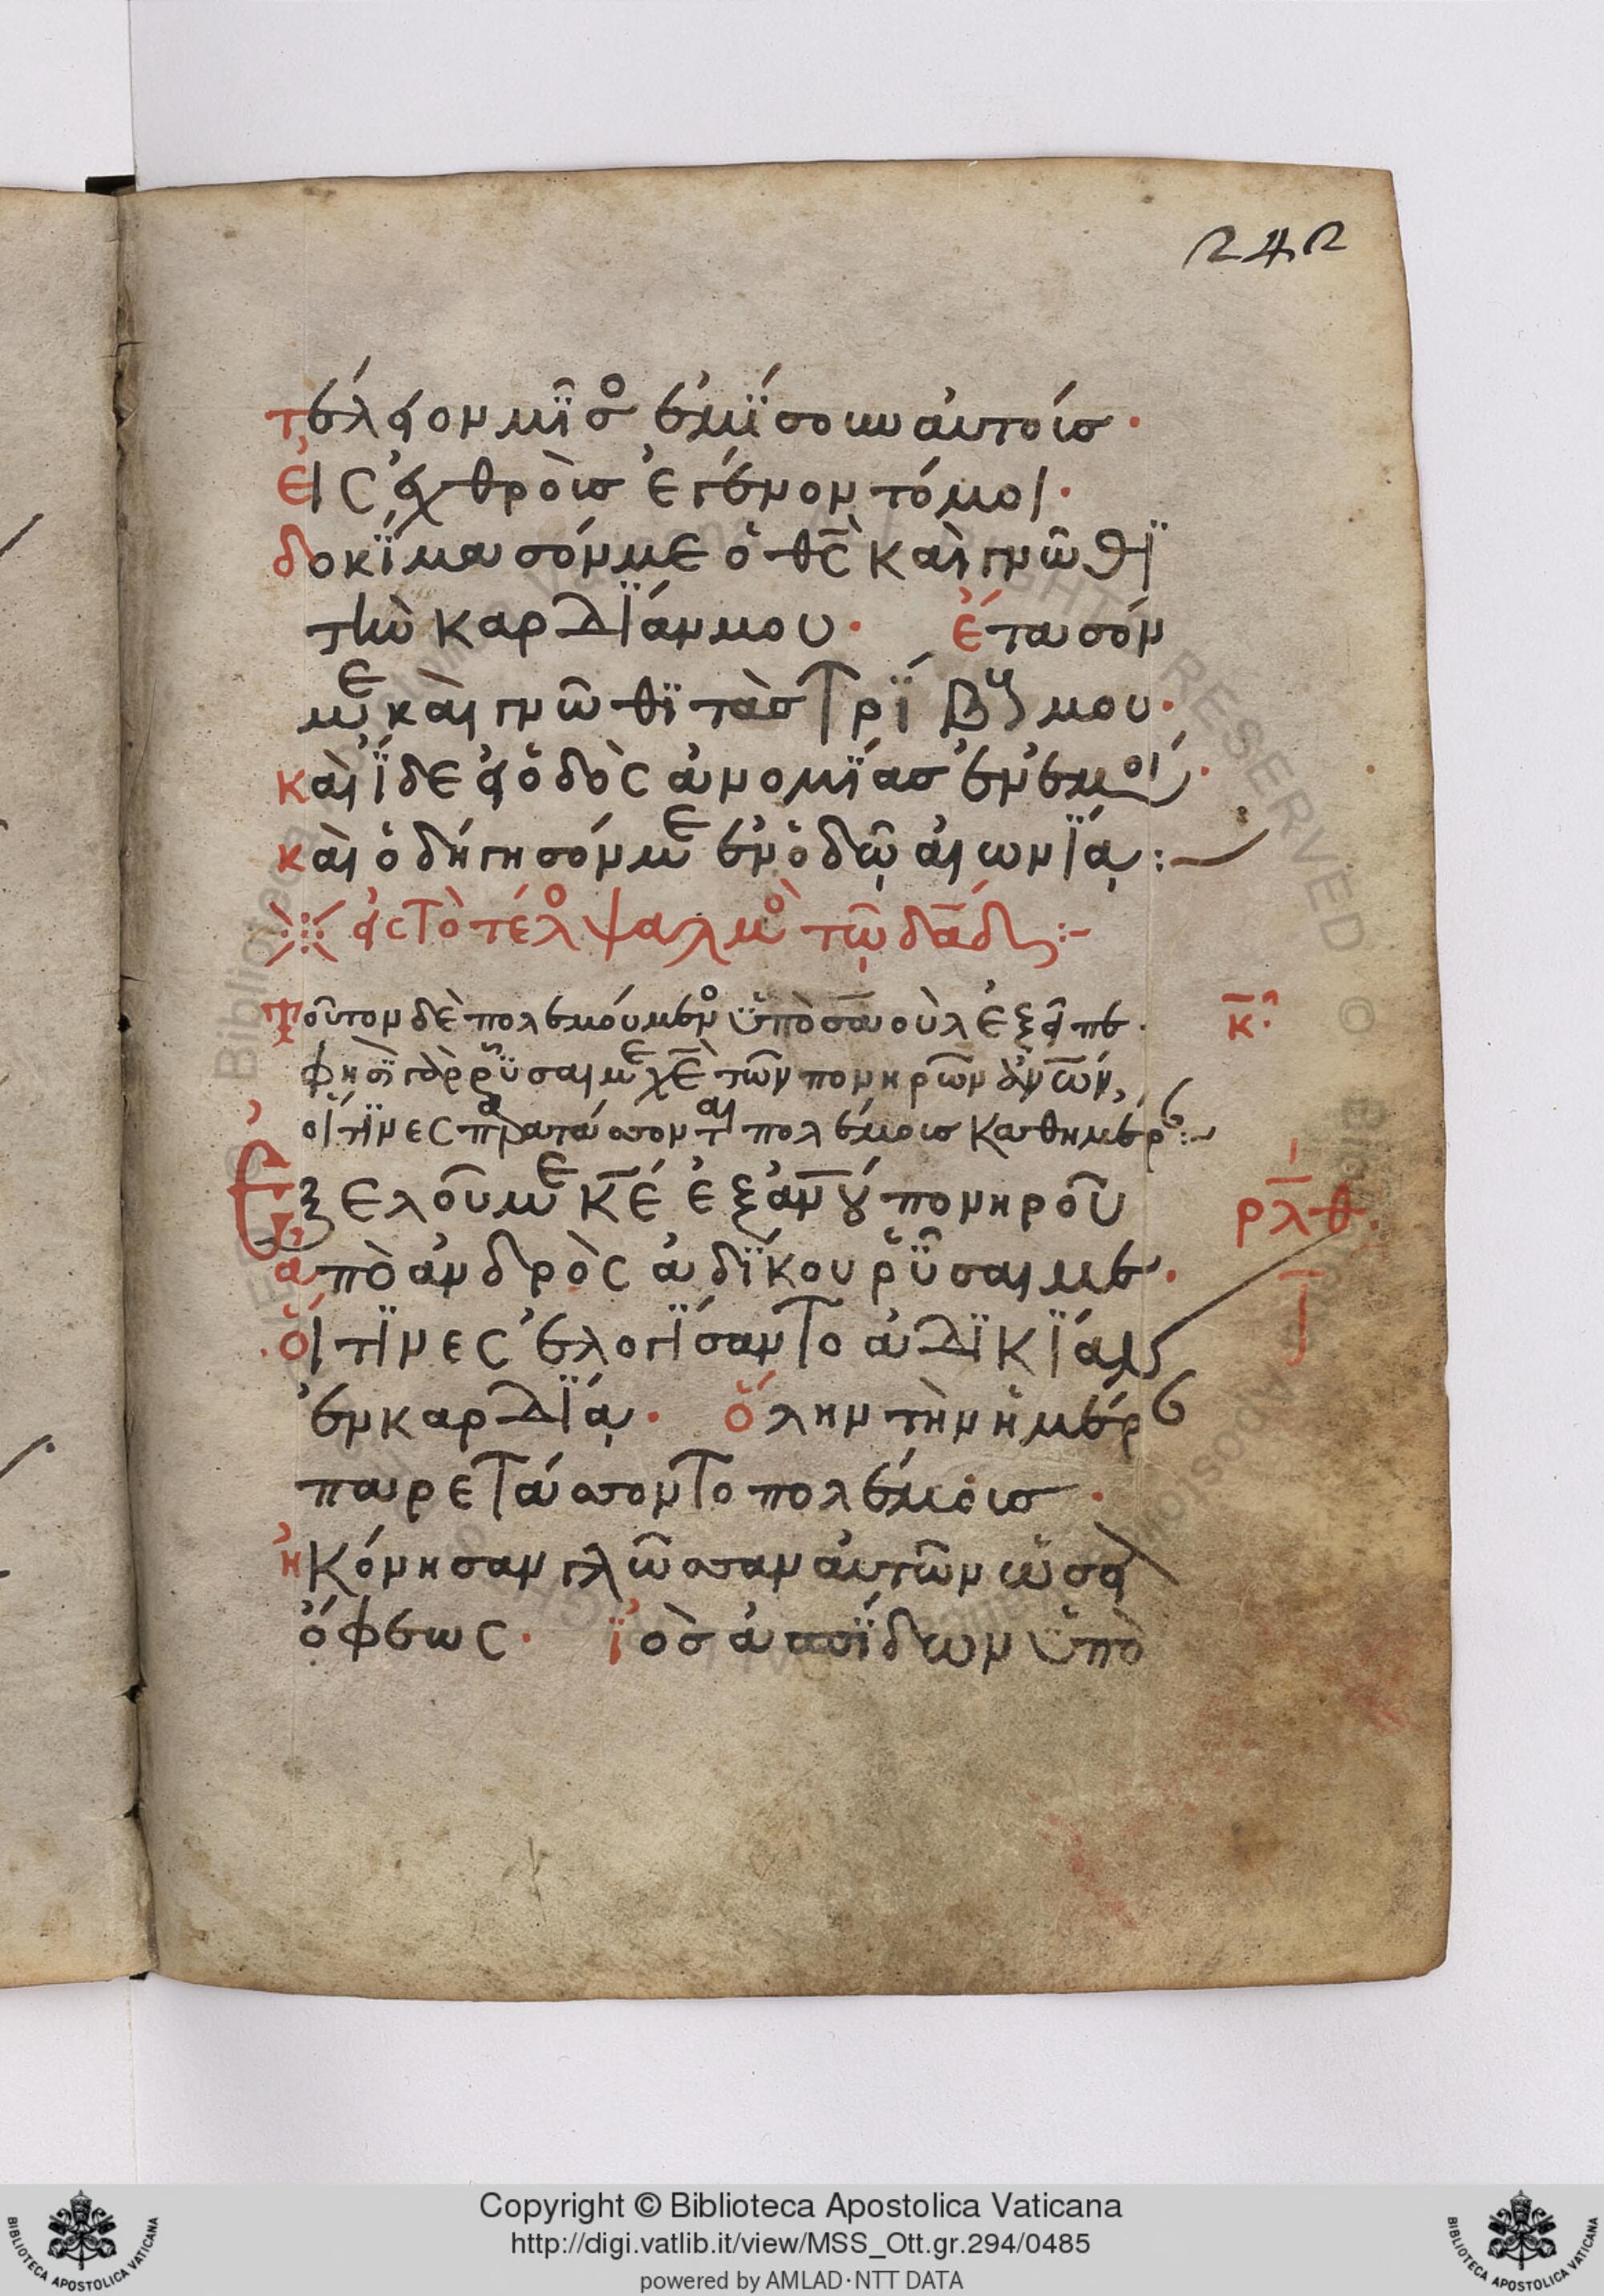 242
τέλειον μῖσος ἐμίσουν αὐτοὺς·
εἰς ἐχθροὺς ἐγένοντό μοι·
δοκίμασόν με ὁ θ̅ς̅ καὶ γνῶθϊ
τὴν καρδΐαν μου· ἔτασόν
με καὶ γνῶθϊ τὰς τρίβους μου·
καὶ ἴδε εἰ ὁδὸς ἀνομΐας ἐν ἐμοί·
καὶ ὁδήγησόν με ἐν ὁδῷ αἰωνΐᾳ:—
εἰς τὸ τέλος ψαλμὸς τῷ δα̅δ:-
Τοῦτον δὲ πολεμούμενον ὑπὸ σαοὺλ ἐξεῖπε· κ̅·
φησὶ γὰρ ῥῦσαι με χ̅ε̅ τῶν πονηρῶν ἀ̅ν̅ω̅ν,
οἵτινες παρατάσσονται πολέμοις καθημέραν:-
Ἐξελοῦ με κ̅ε̅ ἐξ ἀ̅ν̅ου πονηροῦ ρ̅λ̅θ̅·
ἀπὸ ἀνδρὸς ἀδΐκου ῥῦσαι με·
οἵτινες ἐλογΐσαντο ἀδικΐας
ἐν καρδΐᾳ· ὅλην τὴν ἡμέραν
παρετάσσοντο πολέμοις·
ἠκόνησαν γλῶσσαν αὐτῶν ὡσεὶ
ὄφεως· ἰὸς ἀσπΐδων ὑπὸ
Copyright © Biblioteca Apostolica Vaticana
http://digi.vatlib.it/view/MSS_Ott.gr.294/0485
powered by AMLAD·NTT DATA
BIBLIOTECA APOSTOLICA VATICANA
BIBLIOTECA APOSTOLICA VATICANA